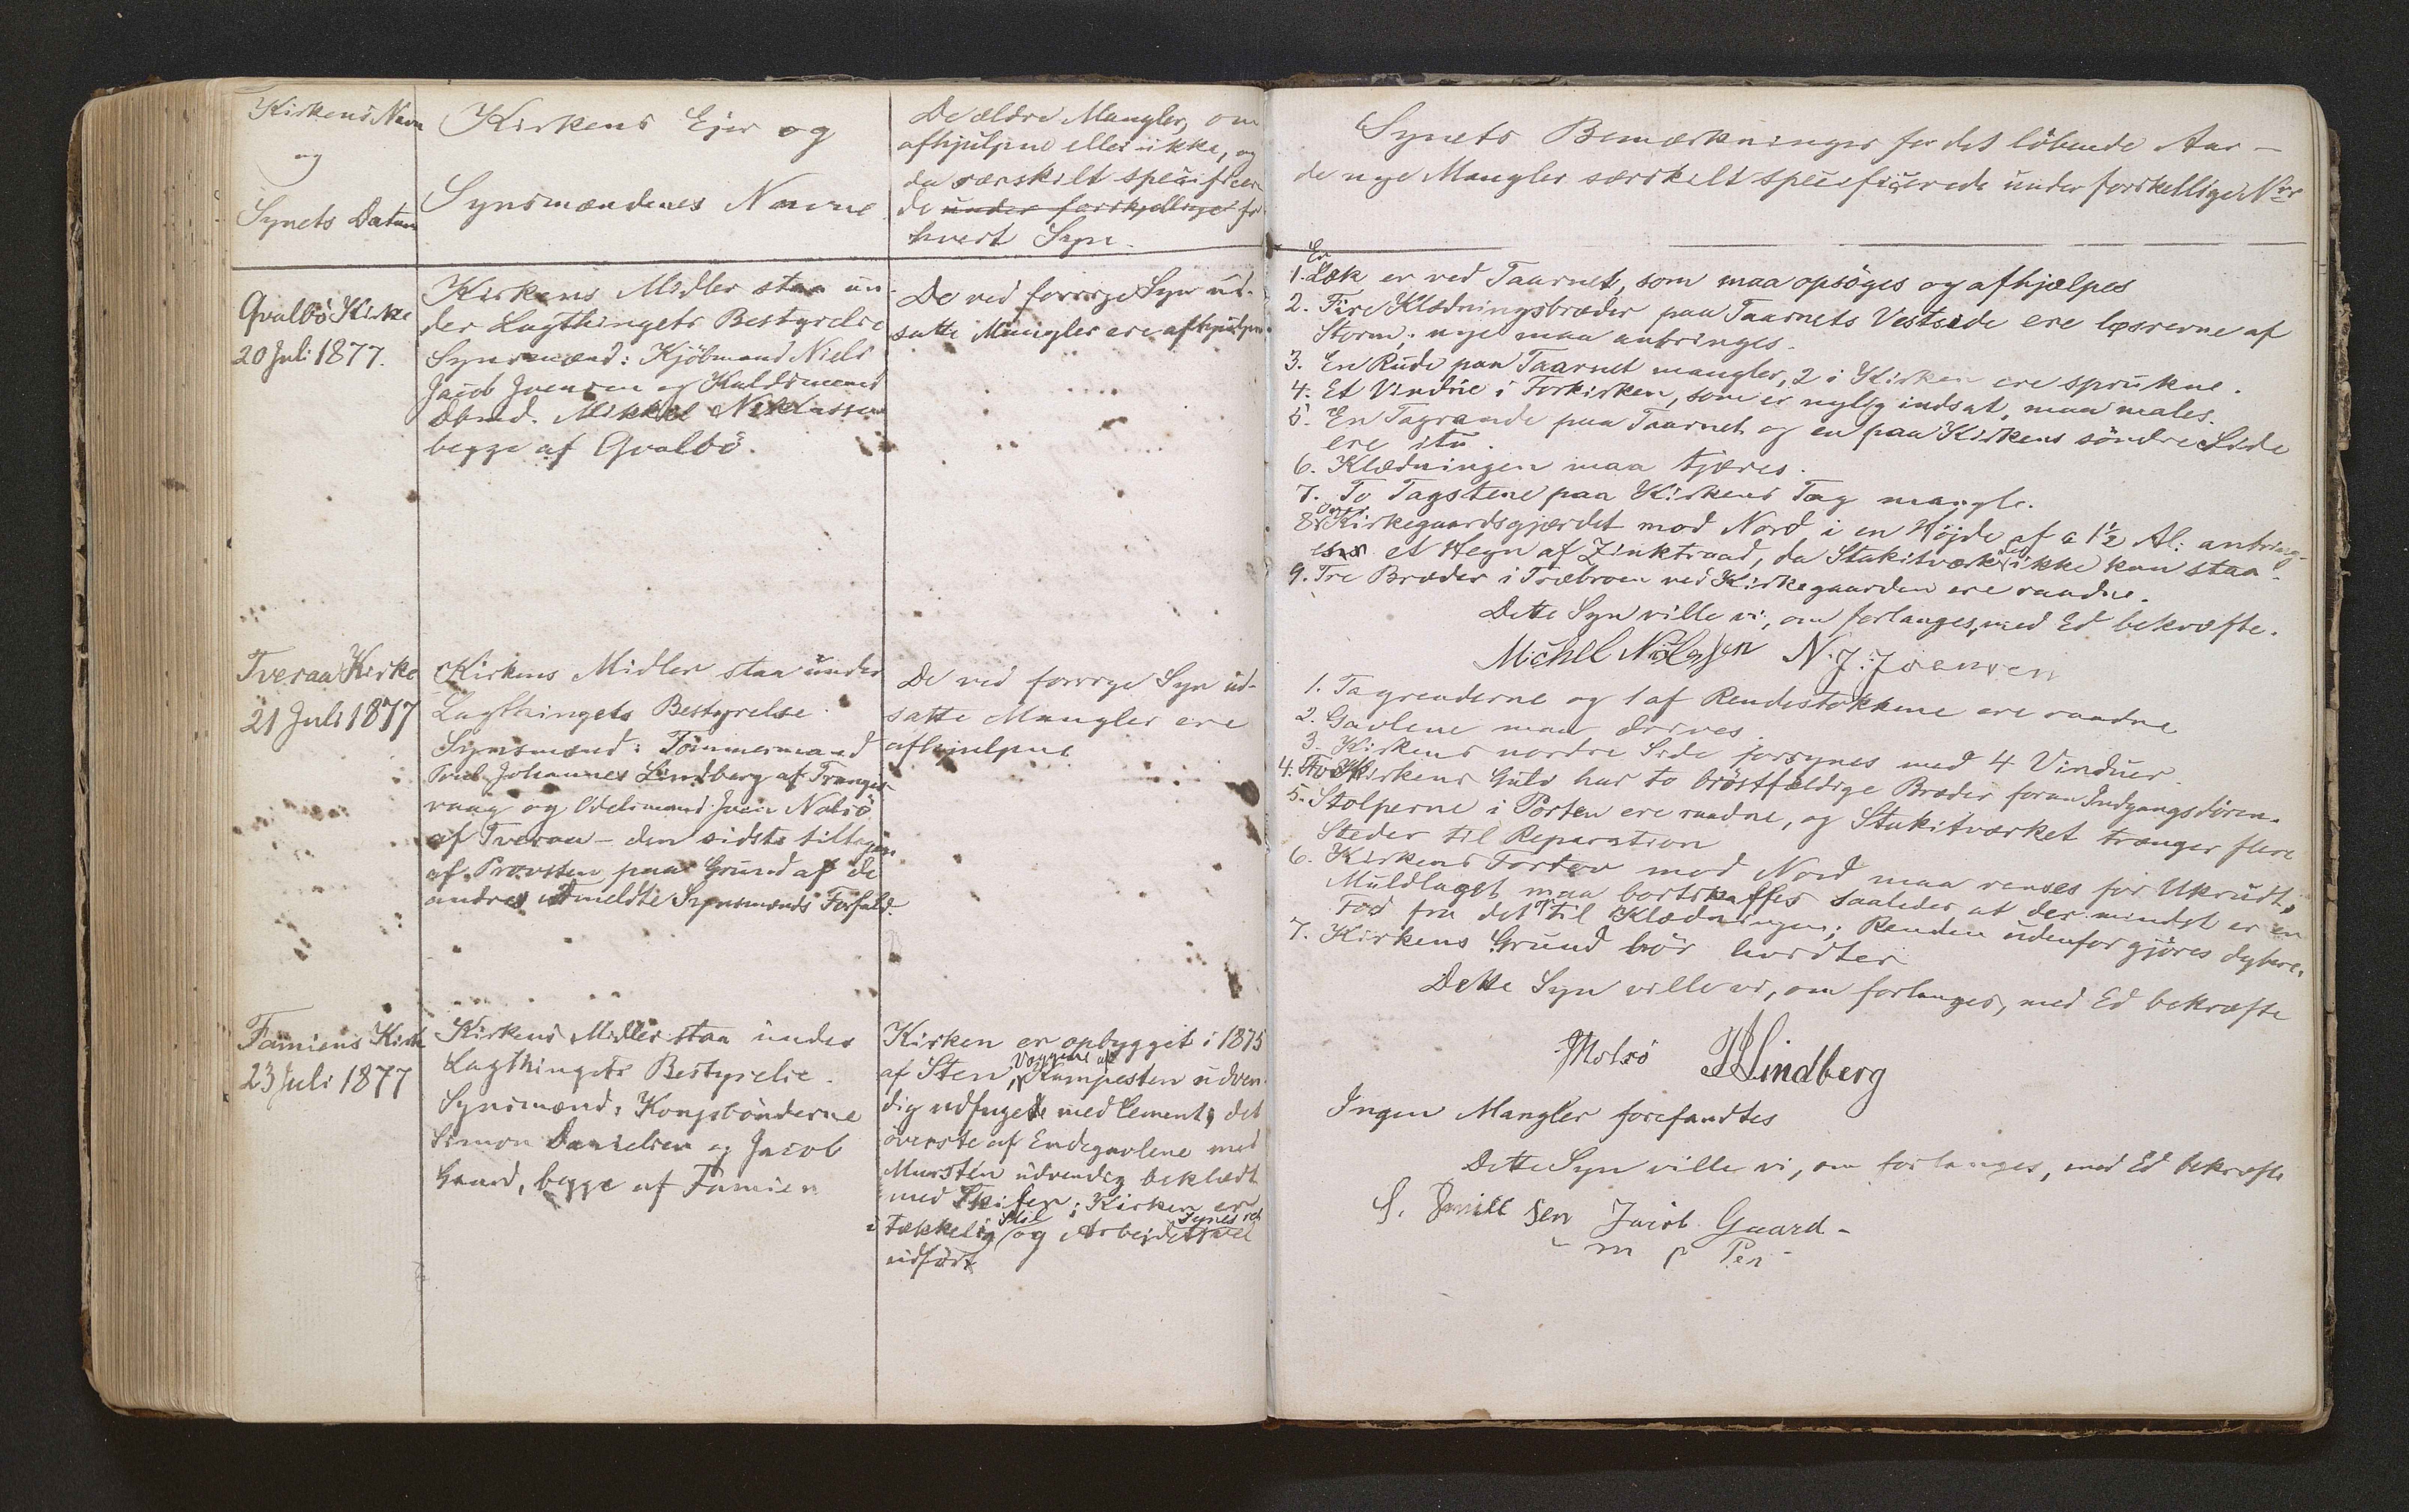 Kirkens Navn
og
Synets Datum
Kirkens Ejer og
Synsmændenes Navne
De ældre Mangler, om
afhjulpne eller ikke, og
da særskilt specificere-
de under forskjellige for
hvert Syn.
Synets Bemærkninger for det löbende Aar —
de nye Mangler særskilt specificerede under forskellige Nre
Qvalbö Kirke
20 Juli 1877.
Kirkens Midler staa un-
der Lagthingets Bestyrelse
Synsmænd: Kjöbmand Niels
Jacob Joensen og
Dbmd. Mikkel Niklassen
begge af Qvalbö.
De ved forrige Syn ud-
satte Mangler ere afhjulpne.
En
1. Læk er ved Taarnet, som maa opsöges og afhjælpes
2. Fire Klædningsbræder paa Taarnets Vestside ere løsrevne af
Storm; nye maa anbringes.
3. En Rude paa Taarnet mangler, 2 i Kirken ere sprukne.
4. Et Vindue i Forkirken, som er nylig indsat, maa males.
5. En Tagrende paa Taarnet og en paa Kirkens söndre Side
ere itu.
6. Klædningen maa tjæres.
7. To Tagstene paa Kirkens Tag mangle.
8. Over Kirkegaardsgjærdet mod Nord i en Højde af c 1½ Al: anbring-
es et Hegn af Zinktraad, da Stakitværk der ikke kan staa.
9. Tre Bræder i Træbroen ved Kirkegaarden ere raadne.
Dette Syn ville vi, om forlanges, med Ed bekræfte.
Michel Niclassen N. J. Joensen
Tveraa Kirke
21 Juli 1877
Kirkens Midler staa under
Lagthingets Bestyrelse.
Synsmænd: Tömmermand
Poul Johannes Lindberg af Trangis-
vaag og Odelsmand Joen Nolsö
af Tveraa – den sidste tiltagen
af Provsten paa Grund af de
andre udmeldte Synsmænds Forfald.
De ved forrige Syn ud-
satte Mangler ere
afhjulpne.
1. Tagrenderne og 1 af Rendestokkene ere raadne
2. Gavlene maa drives.
3. Kirkens nordre Side forsynes med 4 Vinduer.
4. Kirkens Gulv har to bröstfældige Bræder foran Indgangsdören.
5. Stolperne i Porten ere raadne, og Stakitværket trænger flere
Steder til Reparation
6. Kirkens Fortov mod Nord maa renses for Ukrudt,
Muldlaget maa bortskaffes saaledes at der mindst er en
Fod fra det til Klædningen; Renden udenfor gjöres dybere.
7. Kirkens Grund bör hvidtes
Dette Syn ville vi, om forlanges, med Ed bekræfte
JNolsö PJLindberg
Famiens Kirke
23 Juli 1877
Kirkens Midler staa under
Lagthingets Bestyrelse.
Synsmænd: Kongsbönderne
Simon Danielsen og Jacob
Gaard, begge af Famien
Kirken er opbygget i 1875
af Sten, Væggene af Kampesten udven-
dig udfugede med Cement, det
överste af Endegavlene med
Mursten udvendig beklædt
med Skifer; Kirken er
i tækkelig Stil og Arbejdet synes vel
udfört
Ingen Mangler forefandtes
Dette Syn ville vi, om forlanges, med Ed bekræfte
Jacob Gaard –
m p Pen –